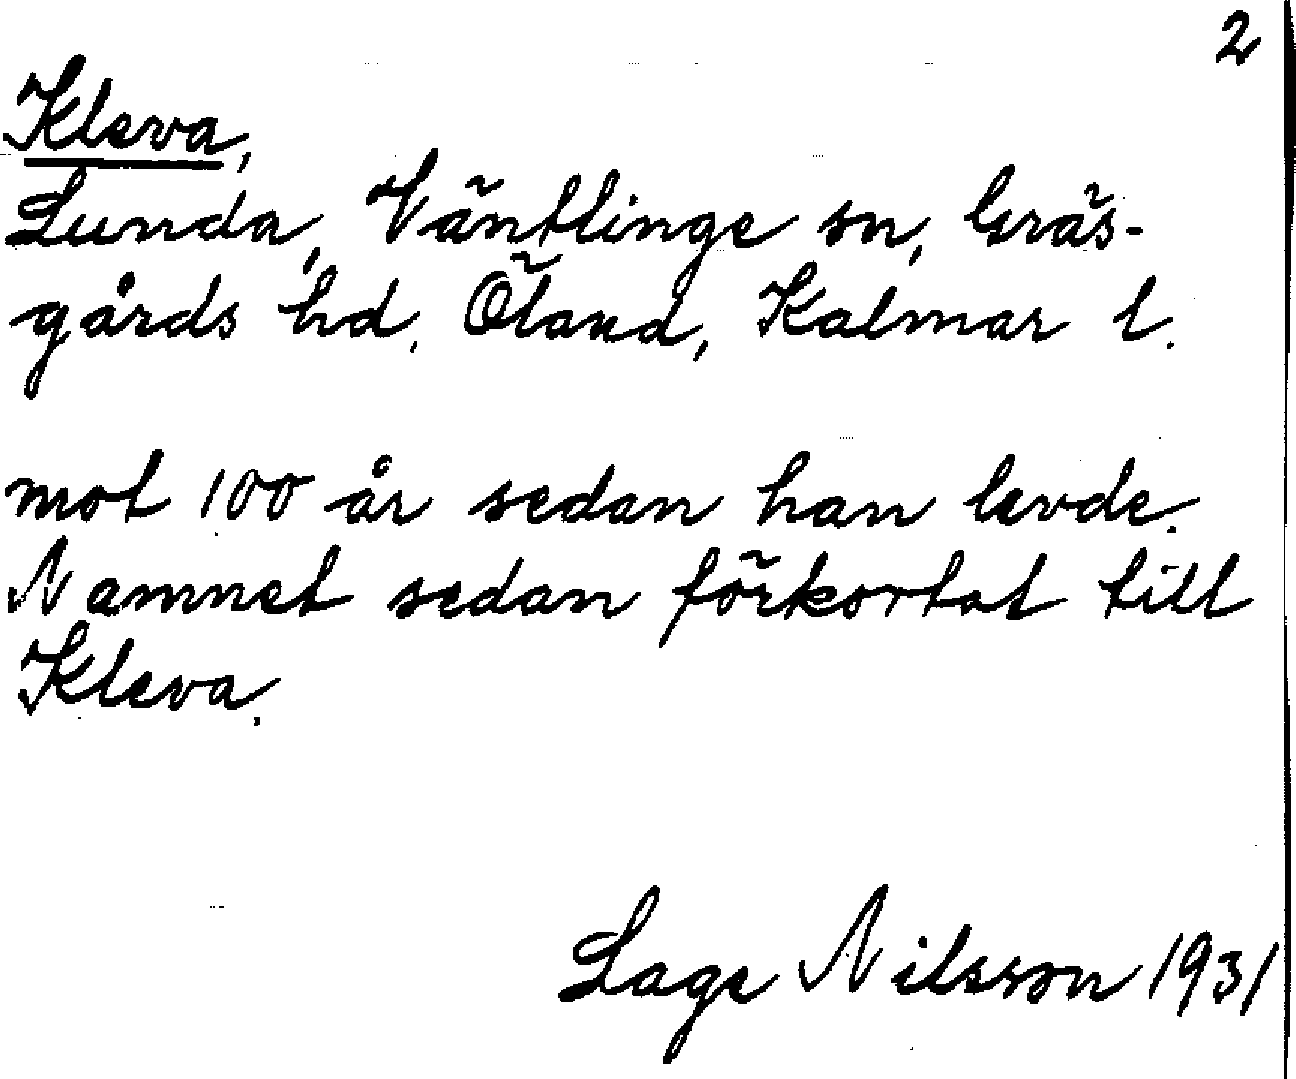 2
Kleva,
Lunda, Väntlinge sn, Gräs-
gårds hd, Öland, Kalmar l.
mot 100 år sedan han levde.
Namnet sedan förkortat till
Kleva.
Lage Nilsson 1931